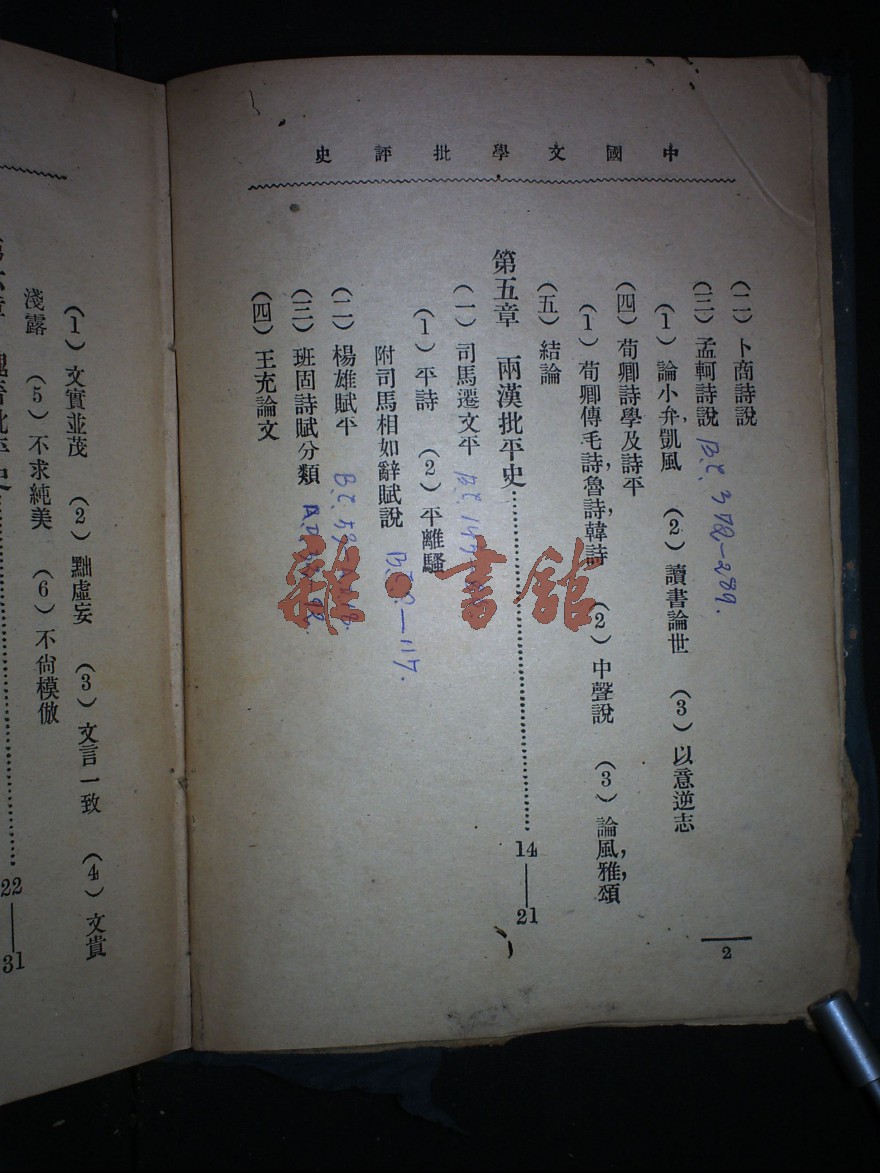 中國文學批評史
(二)卜商詩說
(三)孟軻詩說 B.C. 372-289.
(1)論小弁,凱風 (2)讀書論世 (3)以意逆志
(四)荀卿詩學及詩平
(1)荀卿傳毛詩,魯詩,韓詩 (2)中聲說 (3)論風,雅,頌
(五)結論
第五章 兩漢批平史…………14—21
(一)司馬遷文平 B.C.
(1)平詩 (2)平離騷
附司馬相如辭賦說 B.C. ?—117.
(二)楊雄賦平 B.C. 53
(三)班固詩賦分類 A.D.
(四)王充論文
2
(1)文實並茂 (2)黜虛妄 (3)文言一致 (4)文貴
淺露 (5)不求純美 (6)不尙模倣
第六章 魏晉批平史…………22—31
雜·書館